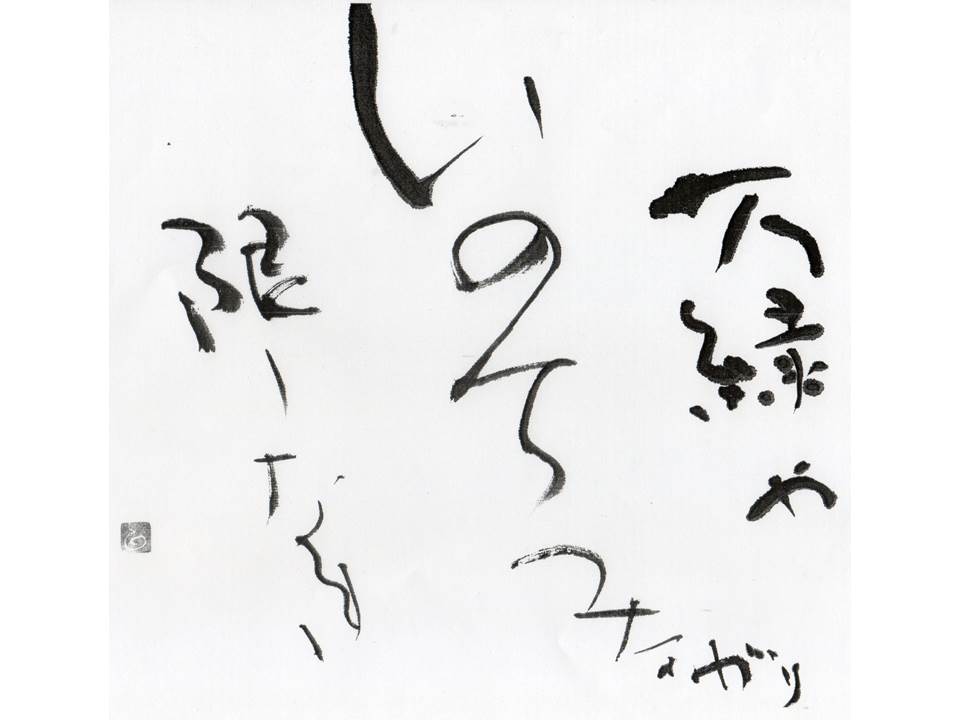 万緑や
いのちつながり
限りなし